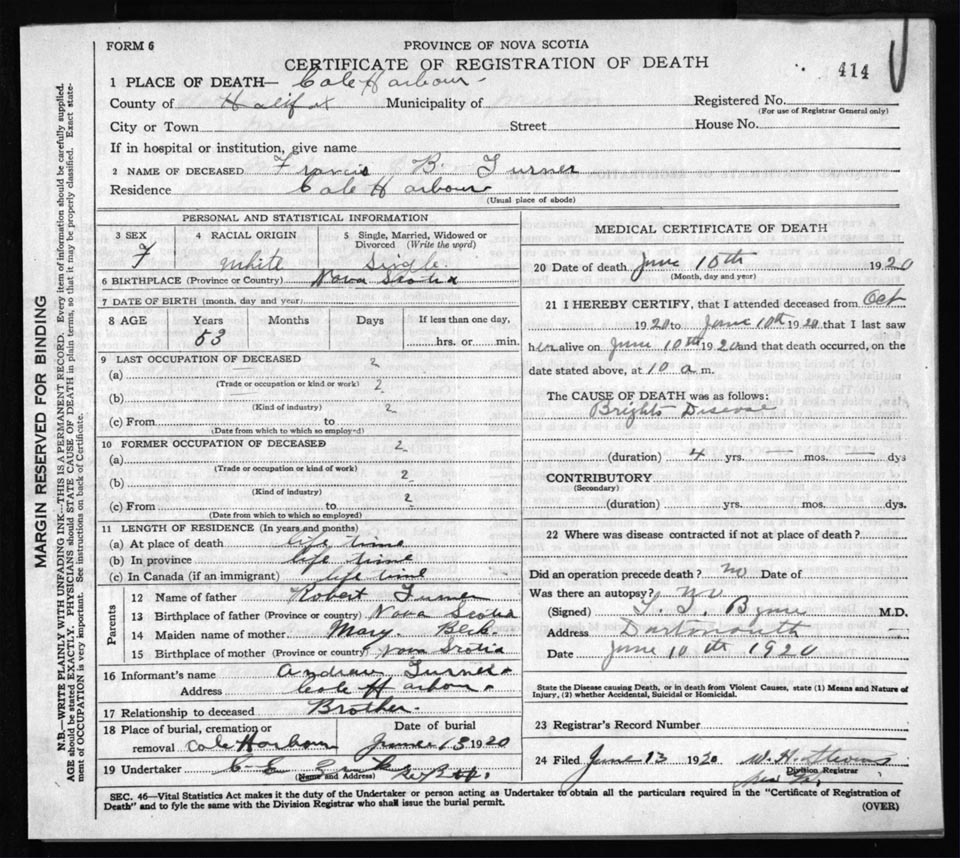 FORM 6
PROVINCE OF NOVA SCOTIA
CERTIFICATE OF REGISTRATION OF DEATH
414
1 PLACE OF DEATH— Cole Harbour
County of Halifax Municipality of
Registered No.
(For use of Registrar General only)
City or Town Street House No.
If in hospital or institution, give name
2 NAME OF DECEASED Francis B. Turner
Residence Cole Harbour
(Usual place of abode)
PERSONAL AND STATISTICAL INFORMATION
3 SEX F
4 RACIAL ORIGIN White
5 Single, Married, Widowed or Divorced (Write the word) Single
6 BIRTHPLACE (Province or Country) Nova Scotia
7 DATE OF BIRTH (month, day and year)
8 AGE Years Months Days If less than one day,
53 hrs. or min.
9 LAST OCCUPATION OF DECEASED
(a)
(Trade or occupation or kind or work)
(b)
(Kind of industry)
(c) From to
(Date from which to which so employed)
10 FORMER OCCUPATION OF DECEASED
(a)
(Trade or occupation or kind of work)
(b)
(Kind of industry)
(c) From to
(Date from which to which so employed)
11 LENGTH OF RESIDENCE (In years and months)
(a) At place of death life time
(b) In province life time
(c) In Canada (if an immigrant) life time
Parents
12 Name of father Robert Turner
13 Birthplace of father (Province or country) Nova Scotia
14 Maiden name of mother Mary
15 Birthplace of mother (Province or country) Nova Scotia
16 Informant's name Andrew Turner
Address Cole Harbour
17 Relationship to deceased Brother
18 Place of burial, cremation or removal Cole Harbour
Date of burial June 13 1920
19 Undertaker
(Name and Address)
MEDICAL CERTIFICATE OF DEATH
20 Date of death June 10th 1920
(Month, day and year)
21 I HEREBY CERTIFY, that I attended deceased from Oct
1920 to June 10th 1920 that I last saw
her alive on June 10th 1920 and that death occurred, on the
date stated above, at 10 a.m.
The CAUSE OF DEATH was as follows:
Brights Disease
(duration) 4 yrs. — mos. — dys
CONTRIBUTORY
(Secondary)
(duration) yrs. mos. dys.
22 Where was disease contracted if not at place of death?
Did an operation precede death? no Date of
Was there an autopsy? no
(Signed) M.D.
Address Dartmouth
Date June 10th 1920
State the Disease causing Death, or in death from Violent Causes, state (1) Means and Nature of
Injury, (2) whether Accidental, Suicidal or Homicidal.
23 Registrar's Record Number
24 Filed June 13 1920
Division Registrar
SEC. 46—Vital Statistics Act makes it the duty of the Undertaker or person acting as Undertaker to obtain all the particulars required in the "Certificate of Registration of
Death" and to fyle the same with the Division Registrar who shall issue the burial permit.
(OVER)
MARGIN RESERVED FOR BINDING
N.B.—WRITE PLAINLY WITH UNFADING INK—THIS IS A PERMANENT RECORD. Every item of information should be carefully supplied.
AGE should be stated EXACTLY. PHYSICIANS should STATE CAUSE OF DEATH in plain terms, so that it may be properly classified. Exact state-
ment of OCCUPATION is very important. See instructions on back of Certificate.